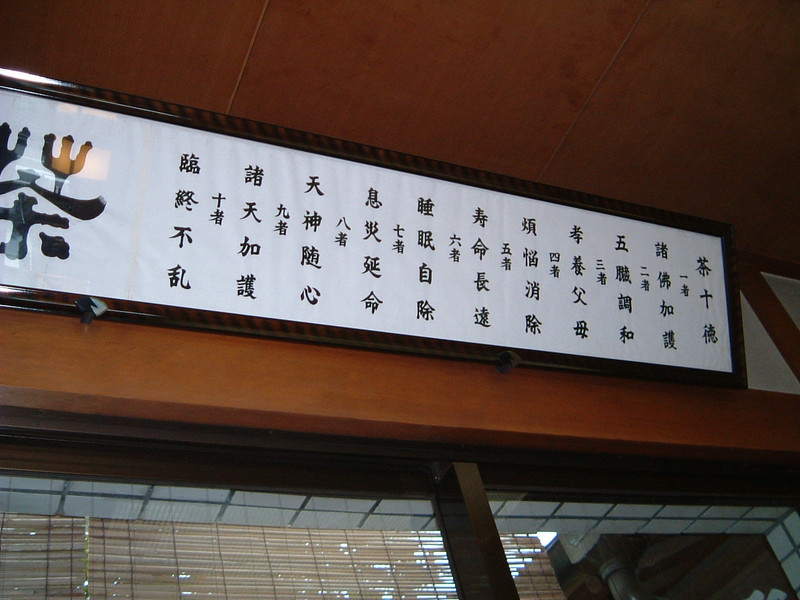 茶十徳
一者
諸佛加護
二者
五臓調和
三者
孝養父母
四者
煩悩消除
五者
寿命長遠
六者
睡眠自除
七者
息災延命
八者
天神随心
九者
諸天加護
十者
臨終不乱
茶